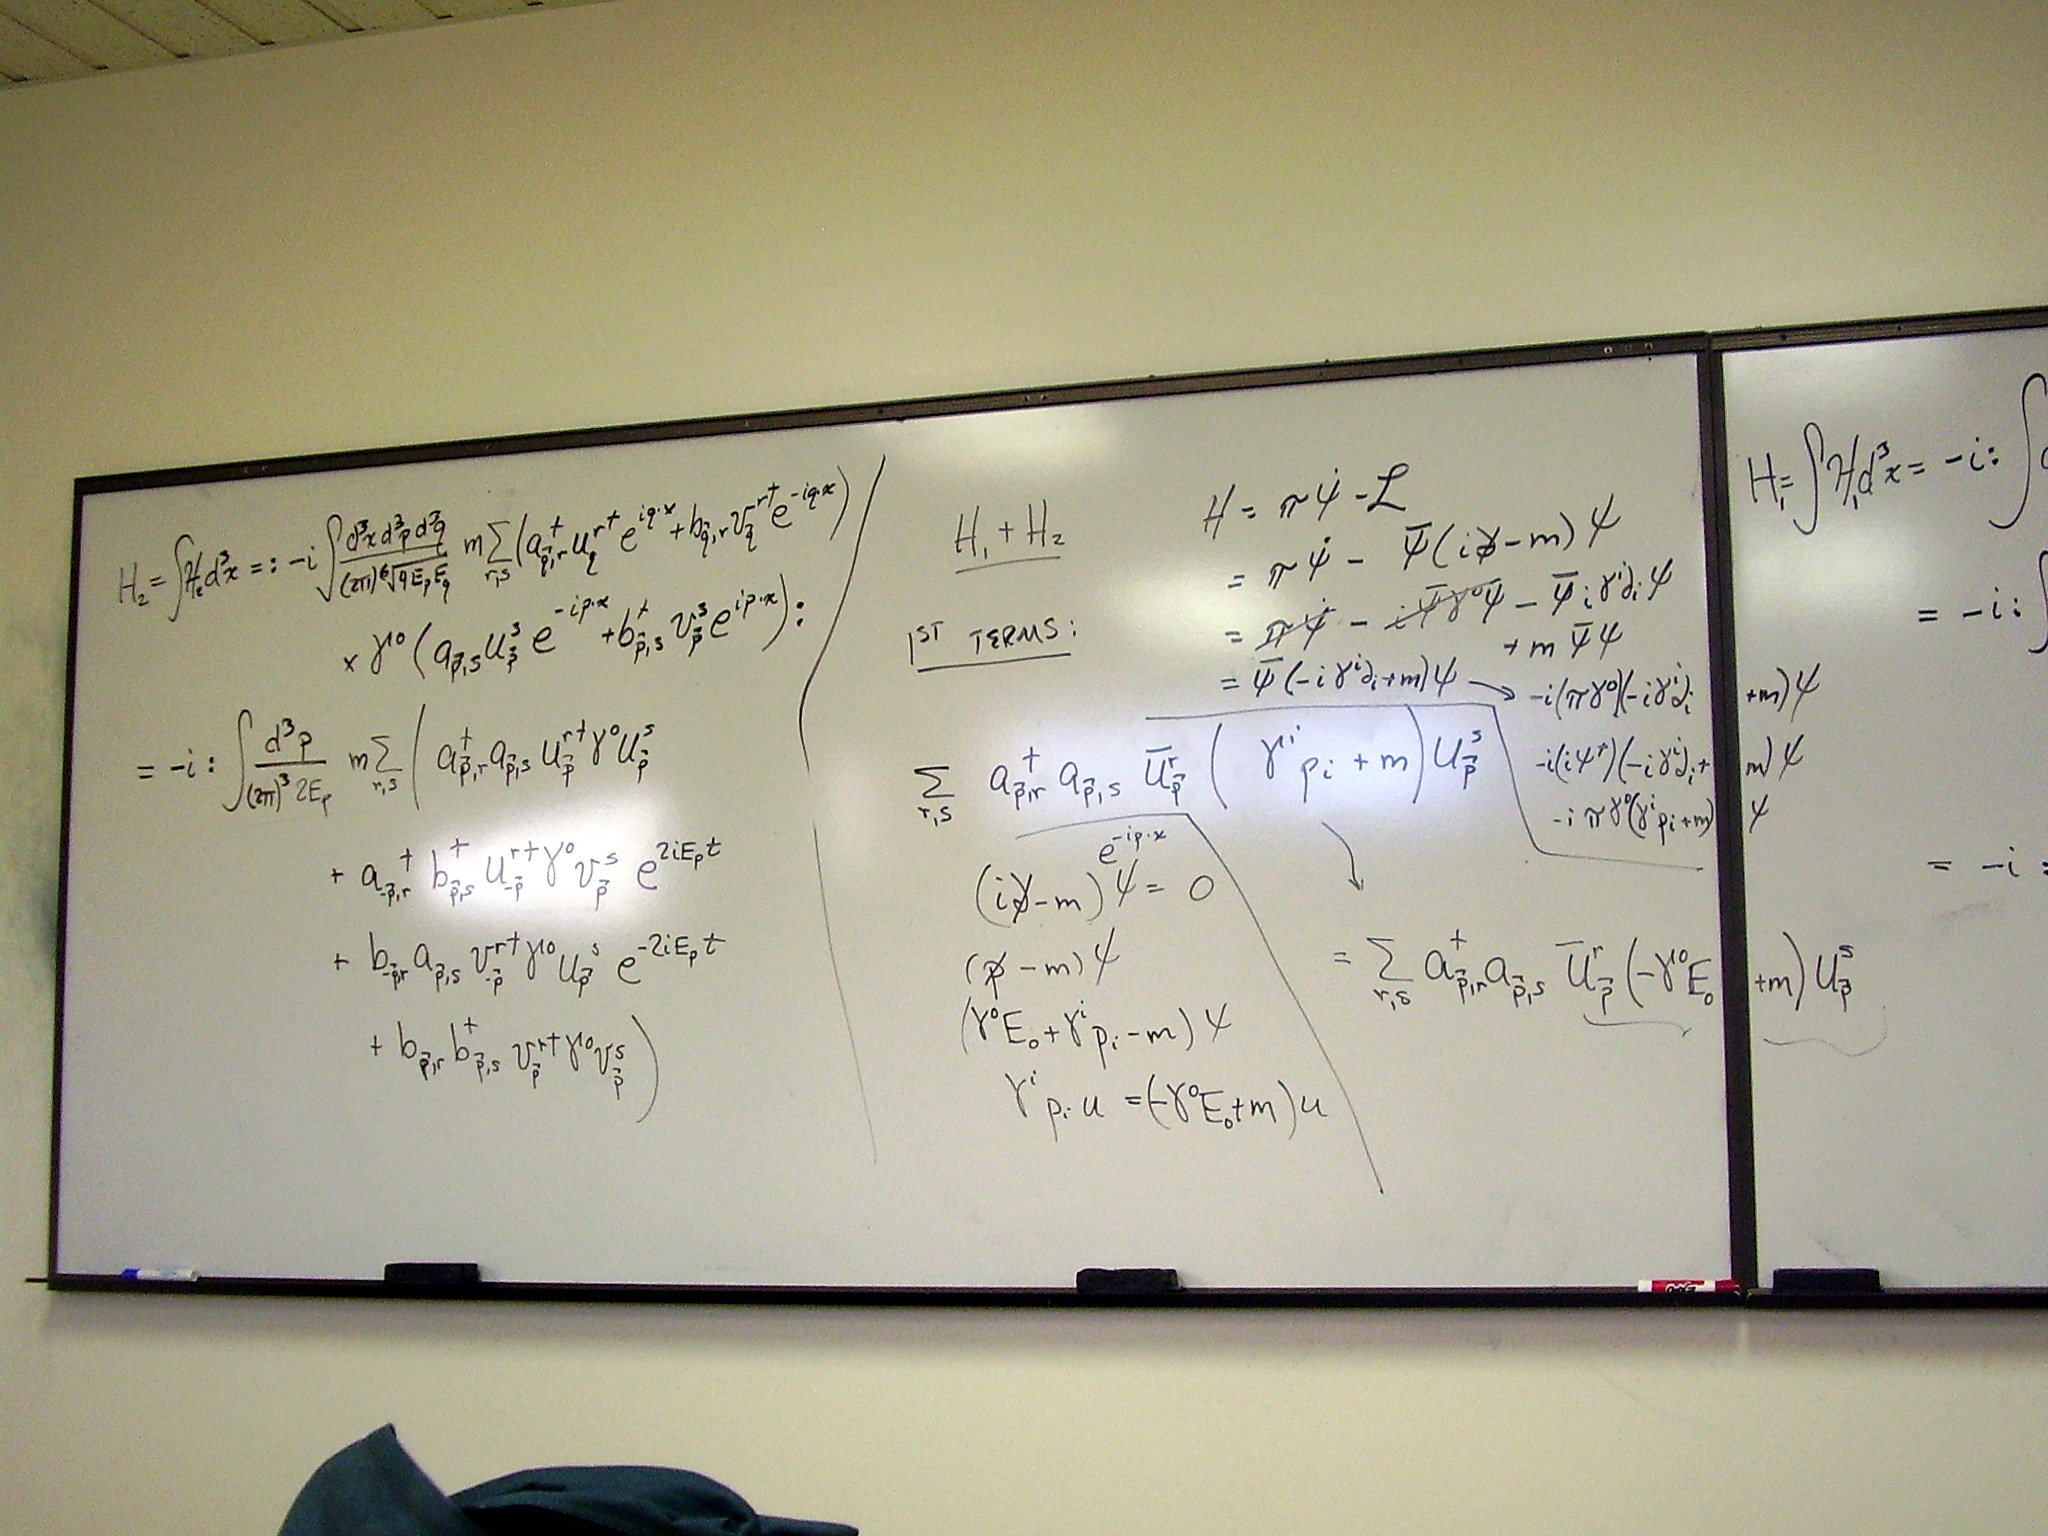 H₂ = ∫ℋ₂d³x = : -i ∫ d³x d³p d³q / (2π)⁶√(4E_pE_q) m Σ_{r,s} (a†_{q⃗,r} u_q^{r†} e^{iq·x} + b_{q⃗,r} v_{q⃗}^{r†} e^{-iq·x})
× γ⁰ (a_{p⃗,s} u^s_{p⃗} e^{-ip·x} + b†_{p⃗,s} v^s_{p⃗} e^{ip·x}) :
= -i : ∫ d³p / (2π)³ 2E_p m Σ_{r,s} ( a†_{p⃗,r} a_{p⃗,s} u^{r†}_{p⃗} γ⁰ u^s_{p⃗}
+ a†_{-p⃗,r} b†_{p⃗,s} u^{r†}_{-p⃗} γ⁰ v^s_{p⃗} e^{2iE_p t}
+ b_{-p⃗,r} a_{p⃗,s} v^{r†}_{-p⃗} γ⁰ u^s_{p⃗} e^{-2iE_p t}
+ b_{p⃗,r} b†_{p⃗,s} v^{r†}_{p⃗} γ⁰ v^s_{p⃗} )
H₁ + H₂
1ST TERMS:
ℋ = πψ̇ - ℒ
= πψ̇ - ψ̄(i∂̸ - m)ψ
= πψ̇ - iψ̄γ⁰ψ̇ - ψ̄iγⁱ∂ᵢψ
+ mψ̄ψ
= ψ̄(-iγⁱ∂ᵢ+m)ψ → -i(πγ⁰)(-iγⁱ∂ᵢ +m)ψ
-i(iψ†)(-iγⁱ∂ᵢ + m)ψ
-iπγ⁰(γⁱpᵢ+m) ψ
Σ_{r,s} a†_{p⃗,r} a_{p⃗,s} ū^r_{p⃗} ( γⁱpᵢ + m ) u^s_{p⃗}
e^{-ip·x}
(i∂̸ - m)ψ = 0
(p̸ - m)ψ
(γ⁰E₀ + γⁱpᵢ - m)ψ
γⁱpᵢu = (-γ⁰E₀+m)u
= Σ_{r,s} a†_{p⃗,r} a_{p⃗,s} ū^r_{p⃗} (-γ⁰E₀ +m) u^s_{p⃗}
H₁= ∫ℋ₁d³x = -i: ∫
= -i: ∫
= -i: